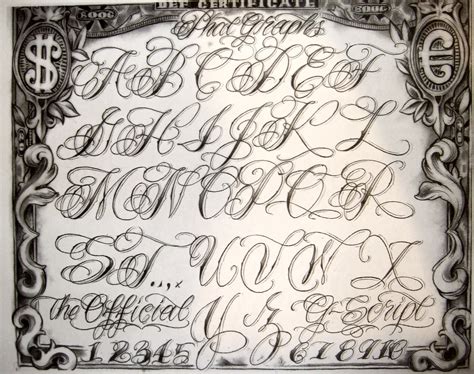 DEF CERTIFICATE
$ €
Phat Graphs
A B C D E F
G H I J K L
M N O P Q R
S T . , U V W X
the Official Y Z G-Script
1 2 3 4 5 6 7 8 9 10